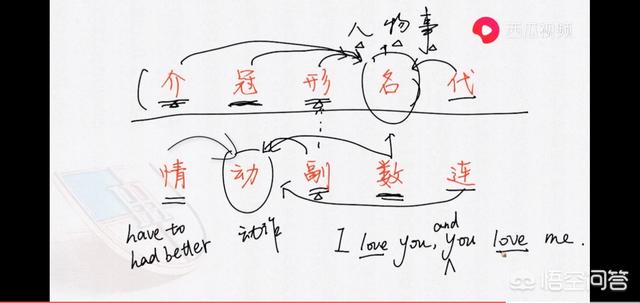 人 物 事
西瓜视频
介 冠 形 名 代
情 动 副 数 连
have to
had better
动作
and
I love you, you love me.
悟空问答